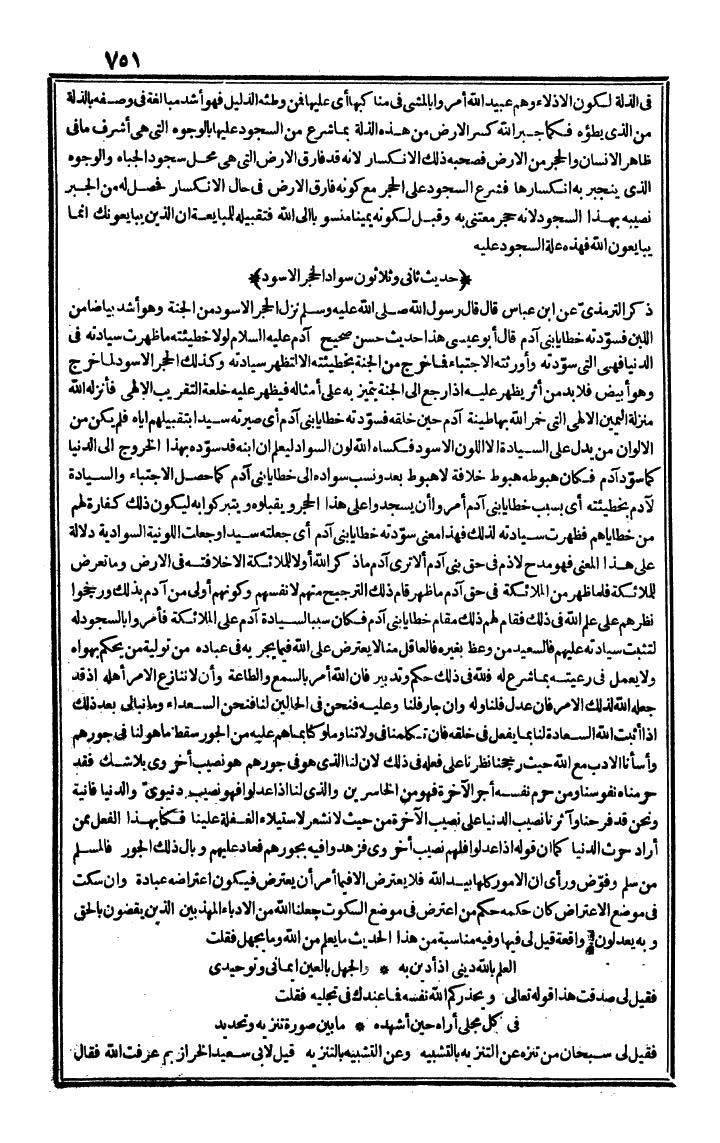 ٧٥١
فى الذلة لكون الاذلاء وهم عبيد الله أمروا بالمشى فى مناكبها أى عليها فمن وطئه الذليل فهو أشد مبالغة فى وصفه بالذلة
من الذى يطؤه فكما جبر الله كسر الارض من هذه الذلة بما شرع من السجود عليها بالوجوه التى هى أشرف ما فى
ظاهر الانسان والحجر من الارض فصحبه ذلك الانكسار لانه قد فارق الارض التى هى محل سجود الجباه والوجوه
الذى ينجبر به انكسارها فشرع السجود على الحجر مع كونه فارق الارض فى حال الانكسار فحصل له من الجبر
نصيبه بهذا السجود لانه حجر معتنى به وقبل لكونه يمينا منسوبا الى الله فتقبيله للمبايعة ان الذين يبايعونك انما
يبايعون الله فهذه علة السجود عليه
﴿حديث ثانى وثلاثون سواد الحجر الاسود﴾
ذكر الترمذى عن ابن عباس قال قال رسول الله صلى الله عليه وسلم نزل الحجر الاسود من الجنة وهو أشد بياضا من
اللبن فسوّدته خطايا بنى آدم قال أبو عيسى هذا حديث حسن صحيح آدم عليه السلام لولا خطيئته ما ظهرت سيادته فى
الدنيا فهى التى سوّدته وأورثته الاجتباء فما خرج من الجنة بخطيئته الا لتظهر سيادته وكذلك الحجر الاسود لما خرج
وهو أبيض فلا بد من أثر يظهر عليه اذا رجع الى الجنة يتميز به على أمثاله فيظهر عليه خلعة التقريب الالهى فأنزله الله
منزلة اليمين الالهى التى خمر الله بها طينة آدم حين خلقه فسوّدته خطايا بنى آدم أى صيرته سيدا بتقبيلهم اياه فلم يكن من
الالوان من يدل على السيادة الا اللون الاسود فكساه الله لون السواد ليعلم ان ابنه قد سوّده بهذا الخروج الى الدنيا
كما سوّد آدم فكان هبوطه هبوط خلافة لا هبوط بعد ونسب سواده الى خطايا بنى آدم كما حصل الاجتباء والسيادة
لآدم بخطيئته أى بسبب خطايا بنى آدم أمروا أن يسجدوا على هذا الحجر ويقبلوه ويتبركوا به ليكون ذلك كفارة لهم
من خطاياهم فظهرت سيادته لذلك فهذا معنى سوّدته خطايا بنى آدم أى جعلته سيدا وجعلت اللونية السوادية دلالة
على هذا المعنى فهو مدح لا ذم فى حق بنى آدم ألا ترى آدم ما ذكر الله أولا للملائكة الا خلافته فى الارض وما تعرض
للملائكة فلما ظهر من الملائكة فى حق آدم ما ظهر قام ذلك الترجيح منهم لانفسهم وكونهم أولى من آدم بذلك ورجحوا
نظرهم على علم الله فى ذلك فقام لهم ذلك مقام خطايا بنى آدم فكان سببا لسيادة آدم على الملائكة فأمروا بالسجود له
لتثبت سيادته عليهم فالسعيد من وعظ بغيره فالعاقل منا لا يعترض على الله فيما يجريه فى عباده من تولية من يحكم بهواه
ولا يعمل فى رعيته بما شرع له فلله فى ذلك حكم وتدبير فان الله أمر بالسمع والطاعة وأن لا ننازع الامر أهله اذ قد
جعله الله لذلك الامر فان عدل فلنا وله وان جار فلنا وعليه فنحن فى الحالين لنا فنحن السعداء وما نبالى بعد ذلك
اذا أثبت الله السعادة لنا بما يفعل فى خلقه فان تكلمنا فى ولاتنا وملوكنا بما هم عليه من الجور سقط ما هو لنا فى جورهم
وأسأنا الادب مع الله حيث رجحنا نظرنا على فعله فى ذلك لان لنا الذى هو فى جورهم هو نصيب أخروى بلا شك فقد
حرمناه نفوسنا ومن حرم نفسه أجر الآخرة فهو من الخاسرين والذى لنا اذا عدلوا فهو نصيب دنيوى والدنيا فانية
ونحن قد فرحنا وآثرنا نصيب الدنيا على نصيب الآخرة من حيث لا نشعر لاستيلاء الغفلة علينا فكنا بهذا الفعل ممن
أراد حرث الدنيا كما ان قوله اذا عدلوا فلهم نصيب أخروى فزهدوا فيه بجورهم فعاد عليهم وبال ذلك الجور فالمسلم
من سلم وفوّض ورأى ان الامور كلها بيد الله فلا يعترض الا فيما أمر أن يعترض فيكون اعتراضه عبادة وان سكت
فى موضع الاعتراض كان حكمه حكم من اعترض فى موضع السكوت جعلنا الله من الادباء المهذبين الذين يقضون بالحق
وبه يعدلون واقعة قيل لى فيها وفيه مناسبة من هذا الحديث ما يعلم من الله وما يجهل فقلت
العلم بالله دينى اذ أدين به * والجهل بالعين ايمانى وتوحيدى
فقيل لى صدقت هذا قوله تعالى ويحذركم الله نفسه فما عندك فى تجليه فقلت
فى كل مجلى أراه حين أشهده * ما بين صورة تنزيه وتحديد
فقيل لى سبحان من تنزه عن التنزيه بالتشبيه وعن التشبيه بالتنزيه قيل لابى سعيد الخراز بم عرفت الله فقال